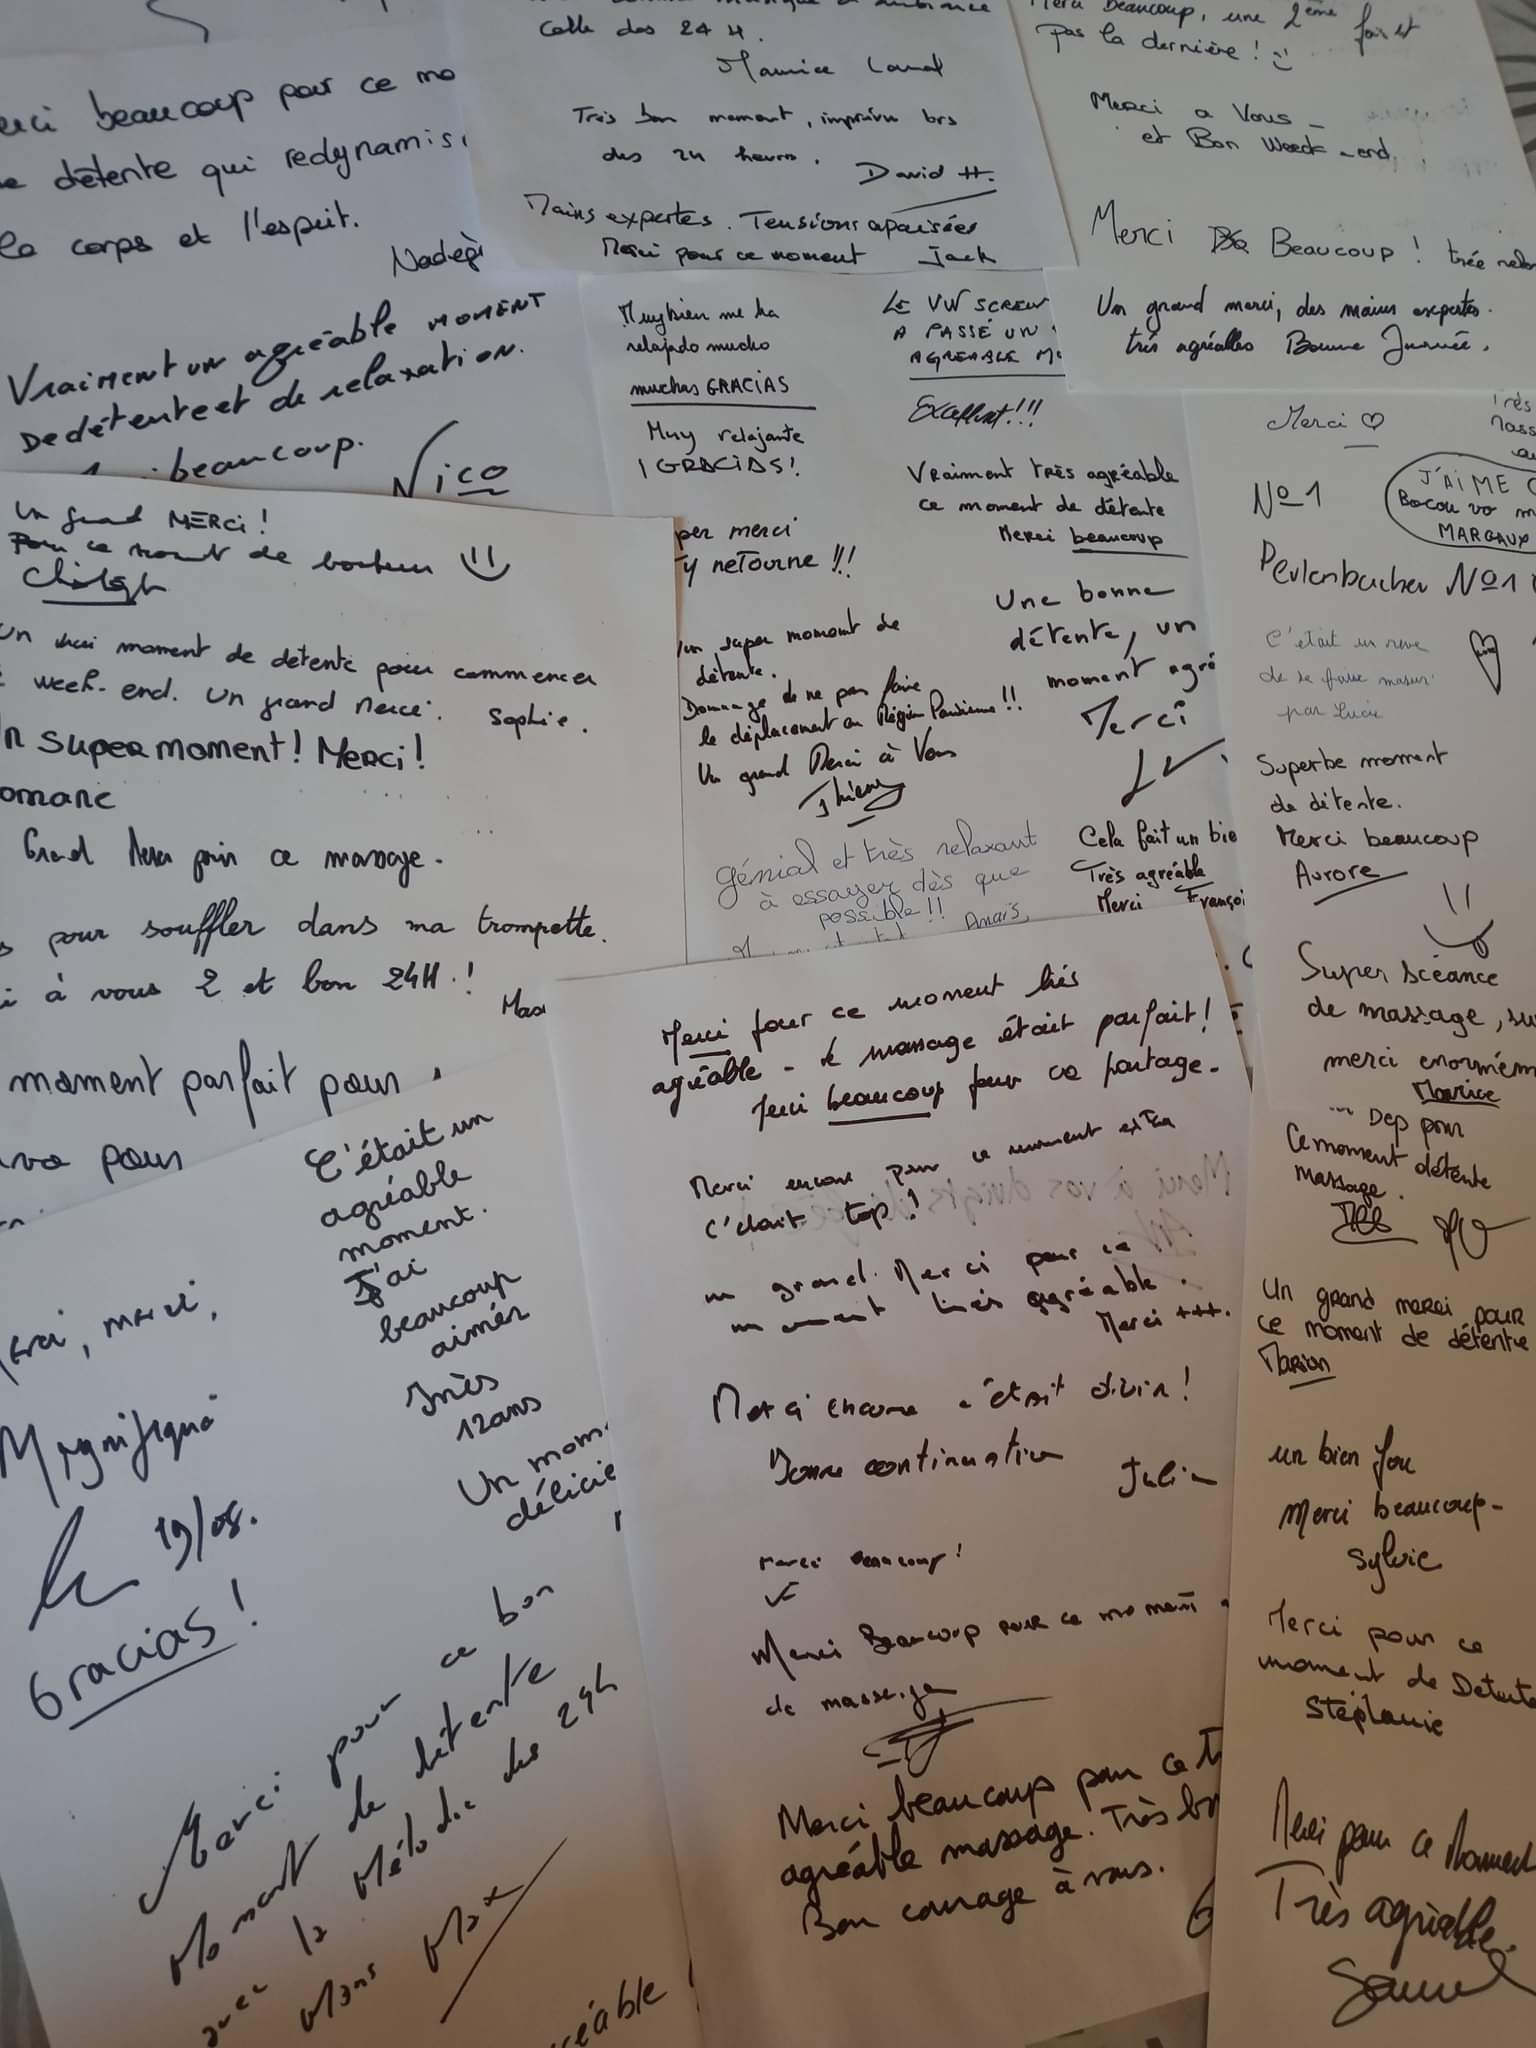 erci beaucoup pour ce mo
détente qui redynamis
corps et l'esprit.
Nadèg
Vraiment un agréable moment
De détente et de relaxation.
beaucoup.
Nico
musique
Celle des 24 H.
Maurice
Très bon moment, imprévu lors
des 24 heures.
David H.
Mains expertes. Tensions apaisées
Merci pour ce moment Jack
Merci Beaucoup, une 2ème fois et
pas la dernière !
Merci a Vous
et Bon Weeck-end
Merci Beaucoup ! trée
Un grand merci, des mains expertes.
très agréables Bonne Journée.
Muy bien me ha
relajado mucho
muchas GRACIAS
Muy relajante
¡GRACIAS!
per merci
y reTourne !!!
un super moment de
détente.
Dommage de ne pas faire
le déplacement en Région Parisienne !!
Un grand Merci à Vous
Thierry
Génial et très relaxant
à essayer dès que
possible !! Anaïs
LE VW
A PASSÉ UN
AGREABLE Mo
Excellent!!!
Vraiment très agréable
ce moment de détente
Merci beaucoup
Une bonne
détente, un
moment agré
Merci
Cela fait un bie
Très agréable
Merci Françoi
Merci ♡
N°1
J'AIME
Bocou vo m
MARGAUX
N°1
C'était un reve
de se faire masser
par Lucie
Superbe moment
de détente.
Merci beaucoup
Aurore
Super scéance
de massage, su
merci enormém
Maurice
Dep pour
Ce moment détente
massage.
Un grand merci pour
ce moment de détente
Marion
un bien fou
Merci beaucoup
Sylvie
Merci pour ce
moment de Detente
Stéphanie
Merci pour ce Moment
Très agréable.
Samuel
Un grand MERCI !
ce moment de bonheur
Un vrai moment de détente pour commencer
week-end. Un grand Merci. Sophie.
n super moment ! Merci !
omane
Grand Merci pour ce massage.
s pour souffler dans ma trompette.
i à vous 2 et bon 24H !
moment parfait pour
pour
erci, merci,
Magnifique
19/08.
Gracias !
C'était un
agréable
moment.
J'ai
beaucoup
aimér
Inès
12 ans
Un mom
délicie
Merci pour ce bon
Moment de détente
avec la Mélodie des 24h
Mans Max
réable !
Merci pour ce moment très
agréable - le massage était parfait !
Merci beaucoup pour ce partage.
Merci encore pour ce moment extra
C'était top !
un grand Merci pour ce
moment très agréable.
Merci +++.
Merci encore c'était divin !
Bonne continuation
Julien
Merci beaucoup !
Merci Beaucoup pour ce moment
de
Merci beaucoup pour ce t
agréable massage. Très b
Bon courage à vous.